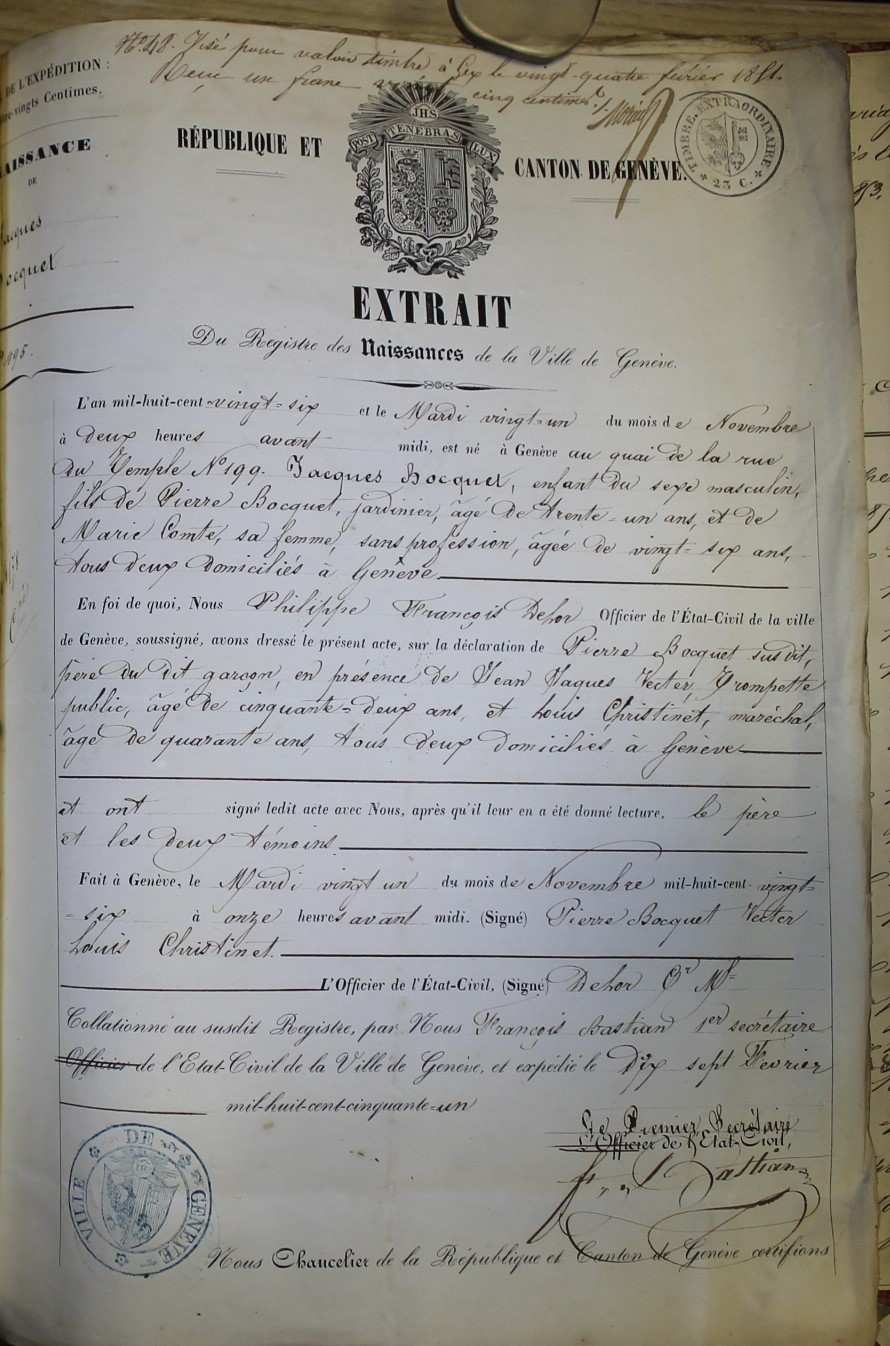 N.º 48. Visé pour valoir timbre à Gex le vingt-quatre février 1851.
Reçu un franc cinq centimes.
DE L'EXPÉDITION :
-vingts Centimes.
NAISSANCE
DE
Jacques
Bocquet
N.º 495.
JHS
POST TENEBRAS LUX
RÉPUBLIQUE ET CANTON DE GENÈVE.
TIMBRE EXTRAORDINAIRE
* 25 C. *
EXTRAIT
Du Registre des Naissances de la Ville de Genève.
L'an mil-huit-cent-vingt-six et le Mardi vingt-un du mois de Novembre
à deux heures avant midi, est né à Genève au quai de la rue
du Temple N.º 199. Jacques Bocquet, enfant du sexe masculin,
fils de Pierre Bocquet, jardinier, âgé de trente-un ans, et de
Marie Comte, sa femme, sans profession, âgée de vingt-six ans,
tous deux domiciliés à Genève
En foi de quoi, Nous Philippe François Dehor Officier de l'État-Civil de la ville
de Genève, soussigné, avons dressé le présent acte, sur la déclaration de Pierre Bocquet susdit,
père du dit garçon, en présence de Jean Jaques Vecter, Trompette
public, âgé de cinquante-deux ans, et Louis Christinet, maréchal,
âgé de quarante ans, tous deux domiciliés à Genève
et ont signé ledit acte avec Nous, après qu'il leur en a été donné lecture, le père
et les deux témoins
Fait à Genève, le Mardi vingt un du mois de Novembre mil-huit-cent-vingt-
-six à onze heures avant midi. (Signé) Pierre Bocquet Vecter
Louis Christinet.
L'Officier de l'État-Civil, (Signé) Dehor
Collationné au susdit Registre, par Nous François Bastian 1er secrétaire
Officier de l'Etat-Civil de la Ville de Genève, et expédié le Dix sept Fevrier
mil-huit-cent-cinquante-un
Le Premier Secrétaire
L'Officier de l'Etat-Civil,
Bastian
VILLE DE GENÈVE
Nous Chancelier de la République et Canton de Genève certifions